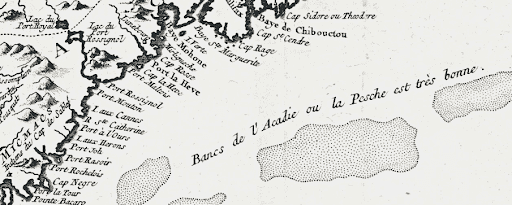 Lac du
Port Royal
Lac du
Port
Rossignol
A
Cap Sidore ou Theodre
Baye de Chibouctou
Cap Ste Cendre
Cap Rage
Baye Ste Marguerite
Port la Heve
Cap la Heve
Port Maltois
Port Rossignol
Port Mouton
I. aux Cannes
R. Ste Catherine
Port à l'Ours
I. aux Herons
Port Joli
Port Rasoir
Port Rochelois
Cap Negre
Port la Tour
Pointe Bacaro
Bancs de l'Acadie ou la Pesche est très bonne.